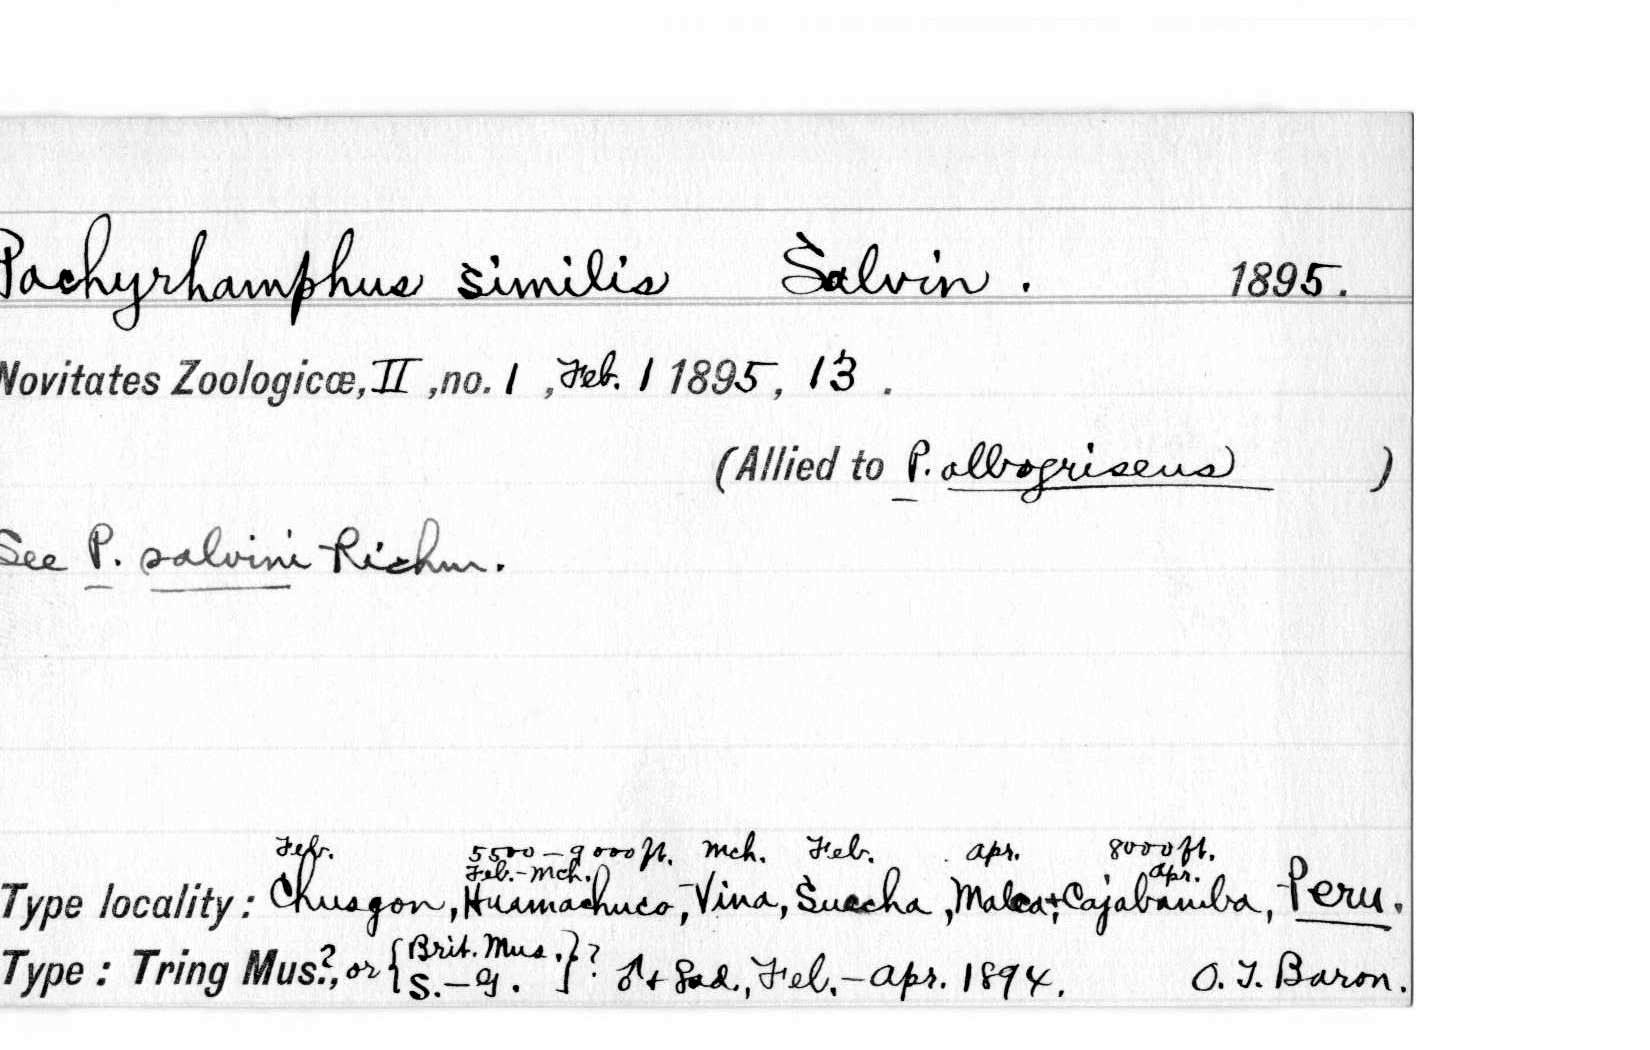 Pachyrhamphus similis Salvin. 1895.
Novitates Zoologicæ, II, no. 1, Feb. 1 1895, 13.
(Allied to P. albogriseus)
See P. salvini Richm.
Feb. 5500–9000 ft. Mch. Feb. Apr. 8000 ft.
Feb.–Mch. Apr.
Type locality: Chusgon, Huamachuco, Vina, Succha, Malca, + Cajabamba, Peru.
Type: Tring Mus.?, or {Brit. Mus. S.–G.}? ♂ + ♀ ad., Feb.–Apr. 1894. O. T. Baron.